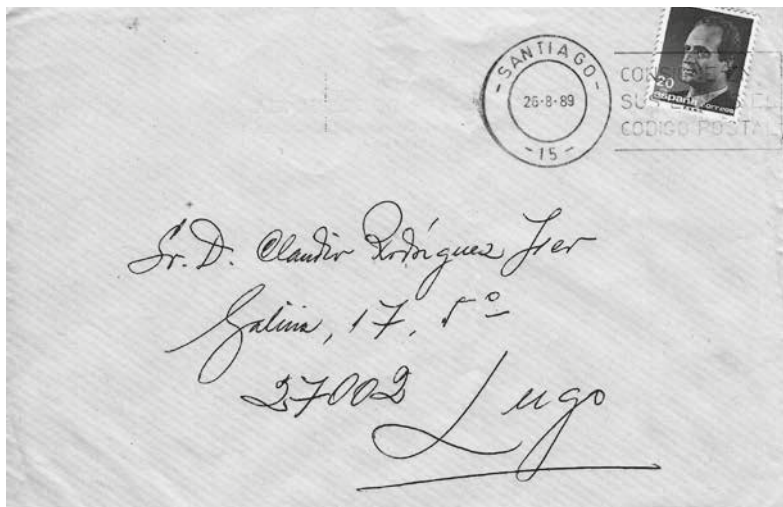 -SANTIAGO-
26-8-89
-15-
CODIGO POSTAL
20
españa correos
Sr. D. Claudio Rodríguez Fer
17, 5º
27002 Lugo